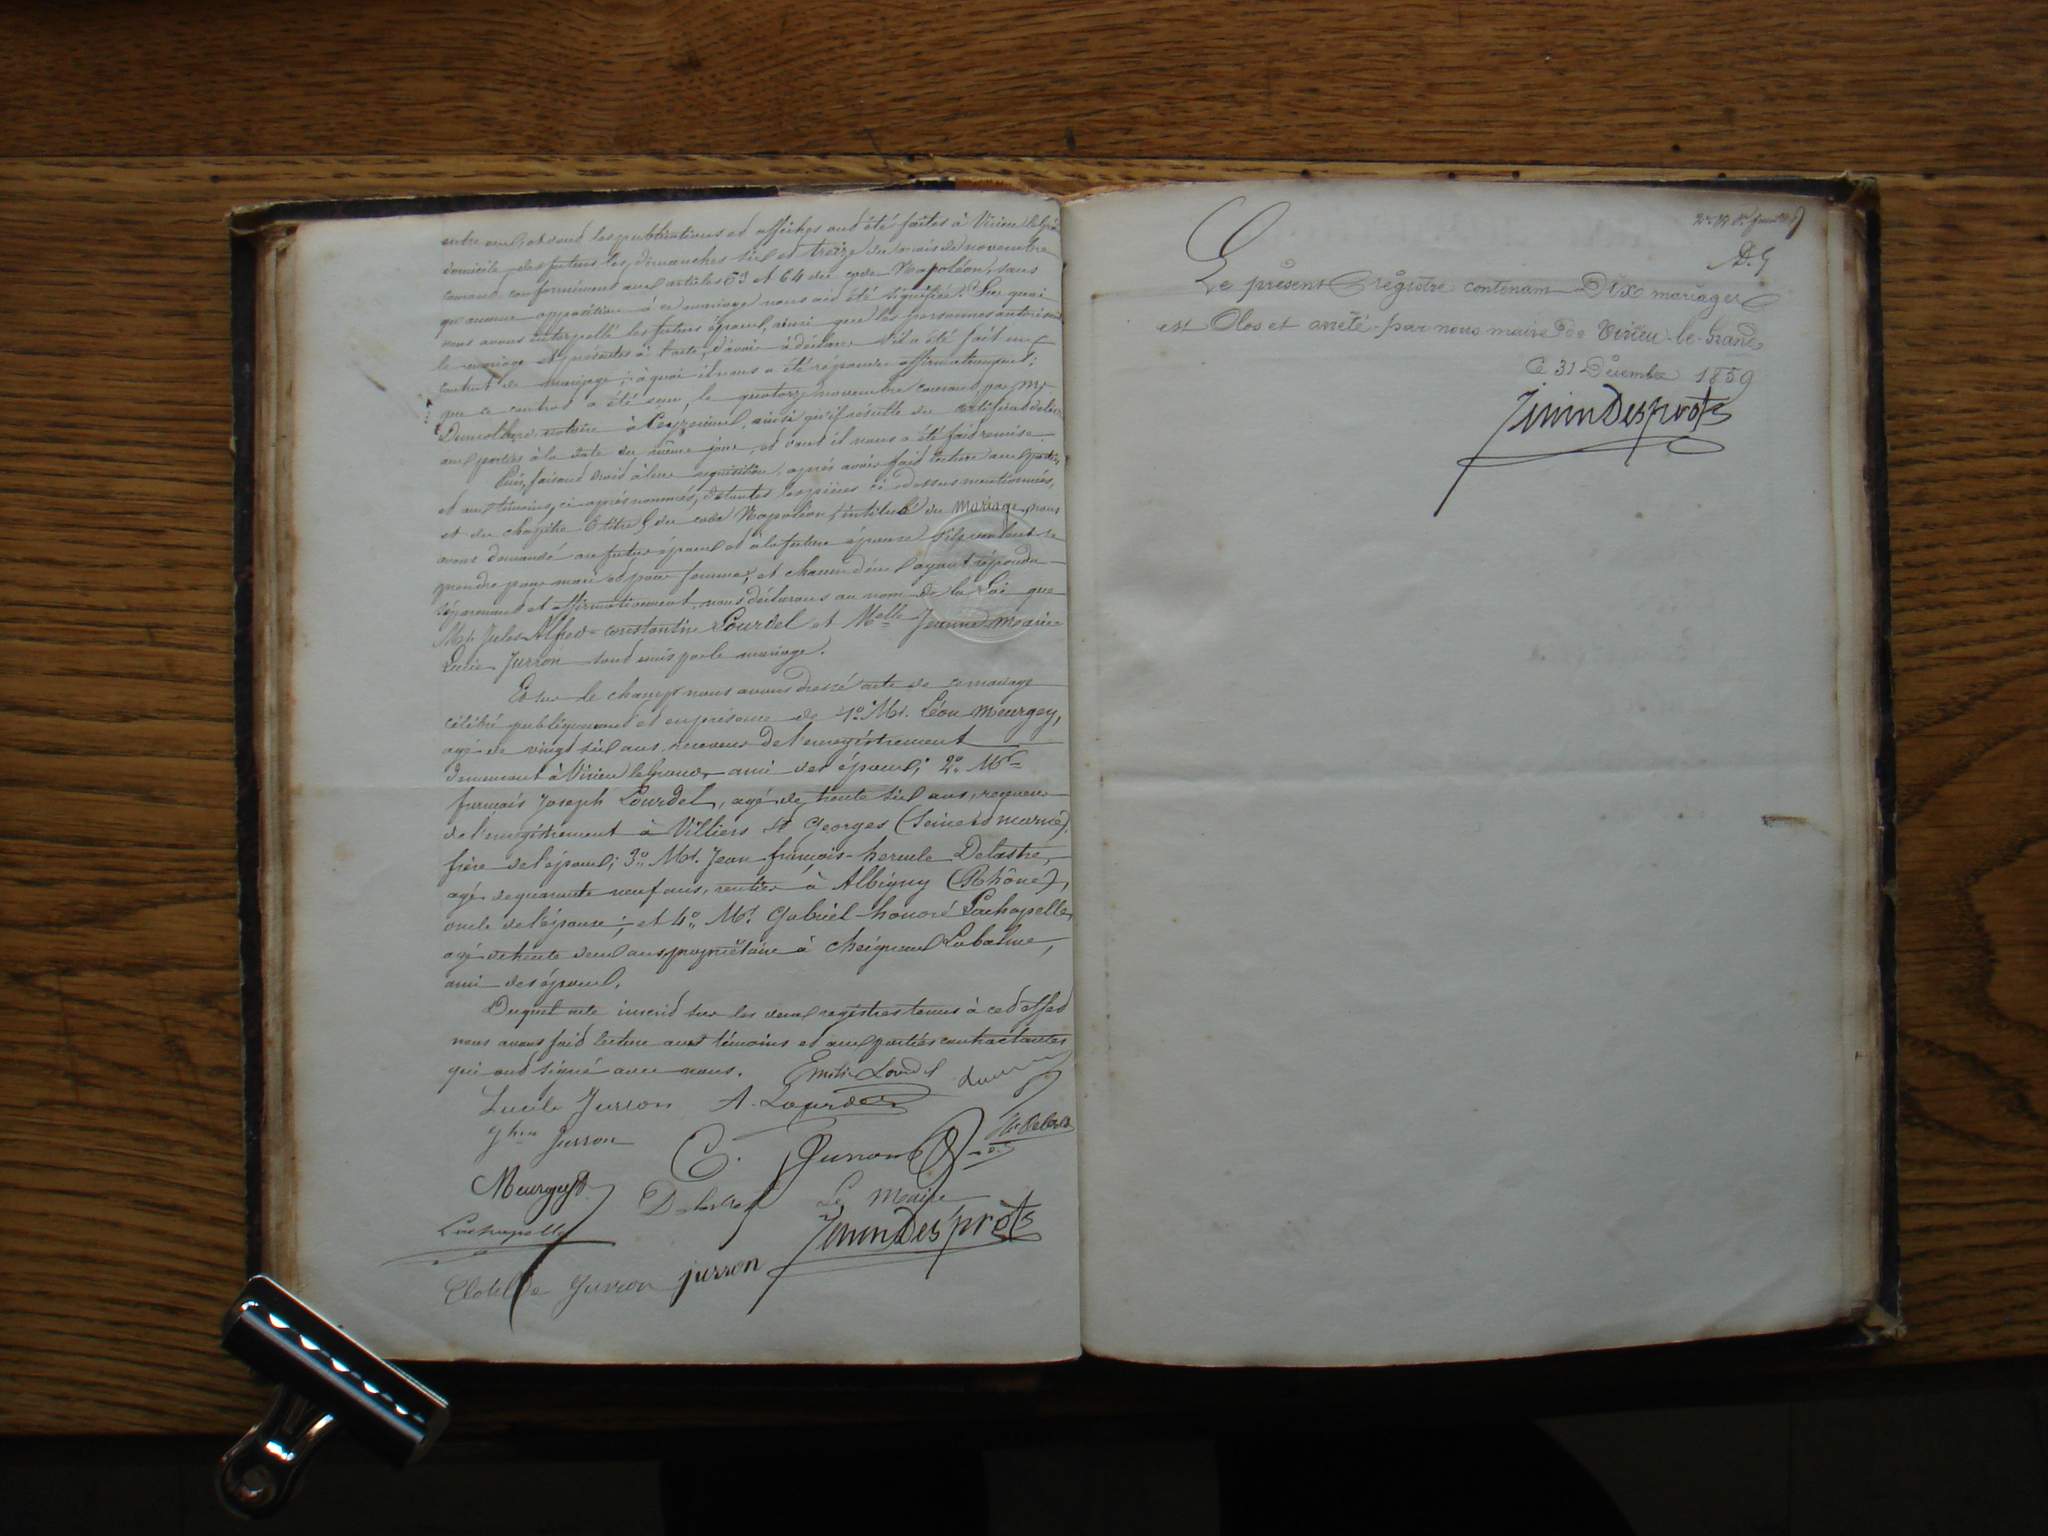 entre eux, et dont les publications et affiches ont été faites à Virieu le grand
domicile des futurs les dimanches six et treize du mois de novembre
courant conformément aux articles 63 et 64 du code Napoléon, sans
qu'aucune opposition à ce mariage nous ait été signifiée. Sur quoi
nous avons interpellé les futurs époux, ainsi que les personnes autorisant
le mariage et présentes à l'acte, d'avoir à déclarer s'il a été fait un
contrat de mariage; à quoi il nous a été répondu affirmativement;
que ce contrat a été reçu, le quatorze novembre courant, par Me
notaire à Ceyzerieu, ainsi qu'il résulte du certificat délivré
aux parties à la date du même jour, et dont il nous a été fait remise.
Puis, faisant droit à leur réquisition, après avoir fait lecture aux parties
et aux témoins, ci-après nommés, de toutes les pièces ci-dessus mentionnées,
et du chapitre 6 titre 5 du code Napoléon, intitulé du mariage, nous
avons demandé au futur époux et à la future épouse s'ils veulent se
prendre pour mari et pour femme, et chacun d'eux ayant répondu
séparément et affirmativement, nous déclarons au nom de la Loi que
Mr. Jules-Alfred-constantin Lourdel et Melle Jeanne Marie
Lucie Jurron sont unis par le mariage.
Et sur le champ nous avons dressé acte de ce mariage
célébré publiquement et en présence de 1o. Mr. Léon Meurgey,
agé de vingt six ans, receveur de l'enregistrement
demeurant à Virieu le grand, ami des époux; 2o. Mr
françois Joseph Lourdel, agé de trente six ans, receveur
de l'enregistrement à Villiers St Georges (Seine et marne),
frère de l'époux; 3o. Mr. Jean-françois-hercule Delastre,
agé de quarante neuf ans, rentier à Albigny (Rhône),
oncle de l'épouse; et 4o. Mr. Gabriel-honoré Lachapelle,
agé de trente deux ans, propriétaire à Cheignieu Labalme,
ami des époux.
Duquel acte inscrit sur les deux registres tenus à cet effet
nous avons fait lecture aux témoins et aux parties contractantes
qui ont signé avec nous. Emilie Lourdel
Lucile Jurron A. Lourdel
Jurron
C. Jurron
Meurgey Delastre Le Maire
Lachapelle JaninDesprôts
Clotilde Jurron jurron
D. G
Le présent Régistre contenant Dix mariages
est Clos et arrêté par nous maire de Virieu-le-Grand
Ce 31 Décembre 1859
JaninDesprôts